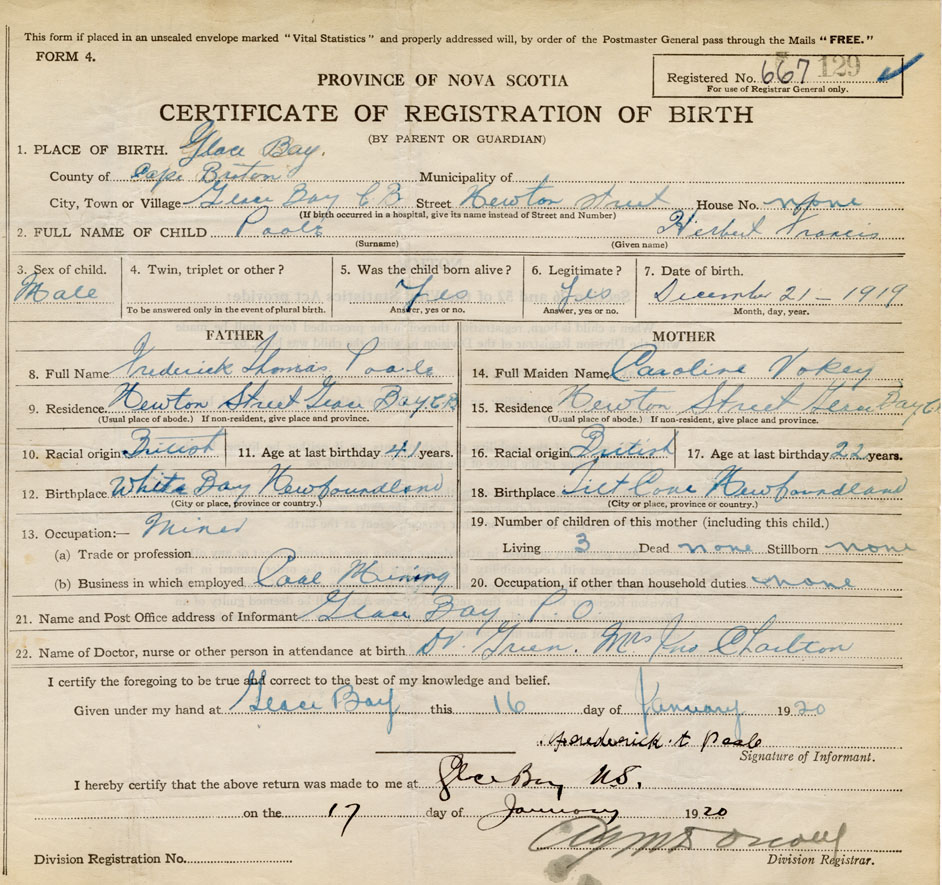 This form if placed in an unsealed envelope marked "Vital Statistics" and properly addressed will, by order of the Postmaster General pass through the Mails "FREE."
FORM 4.
PROVINCE OF NOVA SCOTIA
Registered No. 667 129
For use of Registrar General only.
CERTIFICATE OF REGISTRATION OF BIRTH
(BY PARENT OR GUARDIAN)
1. PLACE OF BIRTH. Glace Bay.
County of Cape Breton Municipality of
City, Town or Village Glace Bay C B Street Newton Street House No. none
(If birth occurred in a hospital, give its name instead of Street and Number)
2. FULL NAME OF CHILD Poole Herbert Francis
(Surname) (Given name)
3. Sex of child. 4. Twin, triplet or other? 5. Was the child born alive? 6. Legitimate? 7. Date of birth.
Male Yes Yes December 21 - 1919
To be answered only in the event of plural birth. Answer, yes or no. Answer, yes or no. Month, day, year.
FATHER MOTHER
8. Full Name Frederick Thomas Poole 14. Full Maiden Name Caroline Vokey
9. Residence Newton Street Glace Bay C B 15. Residence Newton Street Glace Bay C B
(Usual place of abode.) If non-resident, give place and province. (Usual place of abode.) If non-resident, give place and province.
10. Racial origin British 11. Age at last birthday 41 years. 16. Racial origin British 17. Age at last birthday 22 years.
12. Birthplace White Bay Newfoundland 18. Birthplace Tilt Cove Newfoundland
(City or place, province or country.) (City or place, province or country.)
13. Occupation:— Miner 19. Number of children of this mother (including this child.)
(a) Trade or profession Living 3 Dead none Stillborn none
(b) Business in which employed Coal Mining 20. Occupation, if other than household duties none
21. Name and Post Office address of Informant Glace Bay P O.
22. Name of Doctor, nurse or other person in attendance at birth Dr. Green. Mrs Jno Charlton
I certify the foregoing to be true and correct to the best of my knowledge and belief.
Given under my hand at Glace Bay this 16 day of January 1920
Frederick t Poole
Signature of Informant.
I hereby certify that the above return was made to me at Glace Bay N.S.
on the 17 day of January 1920
Division Registration No. Division Registrar.